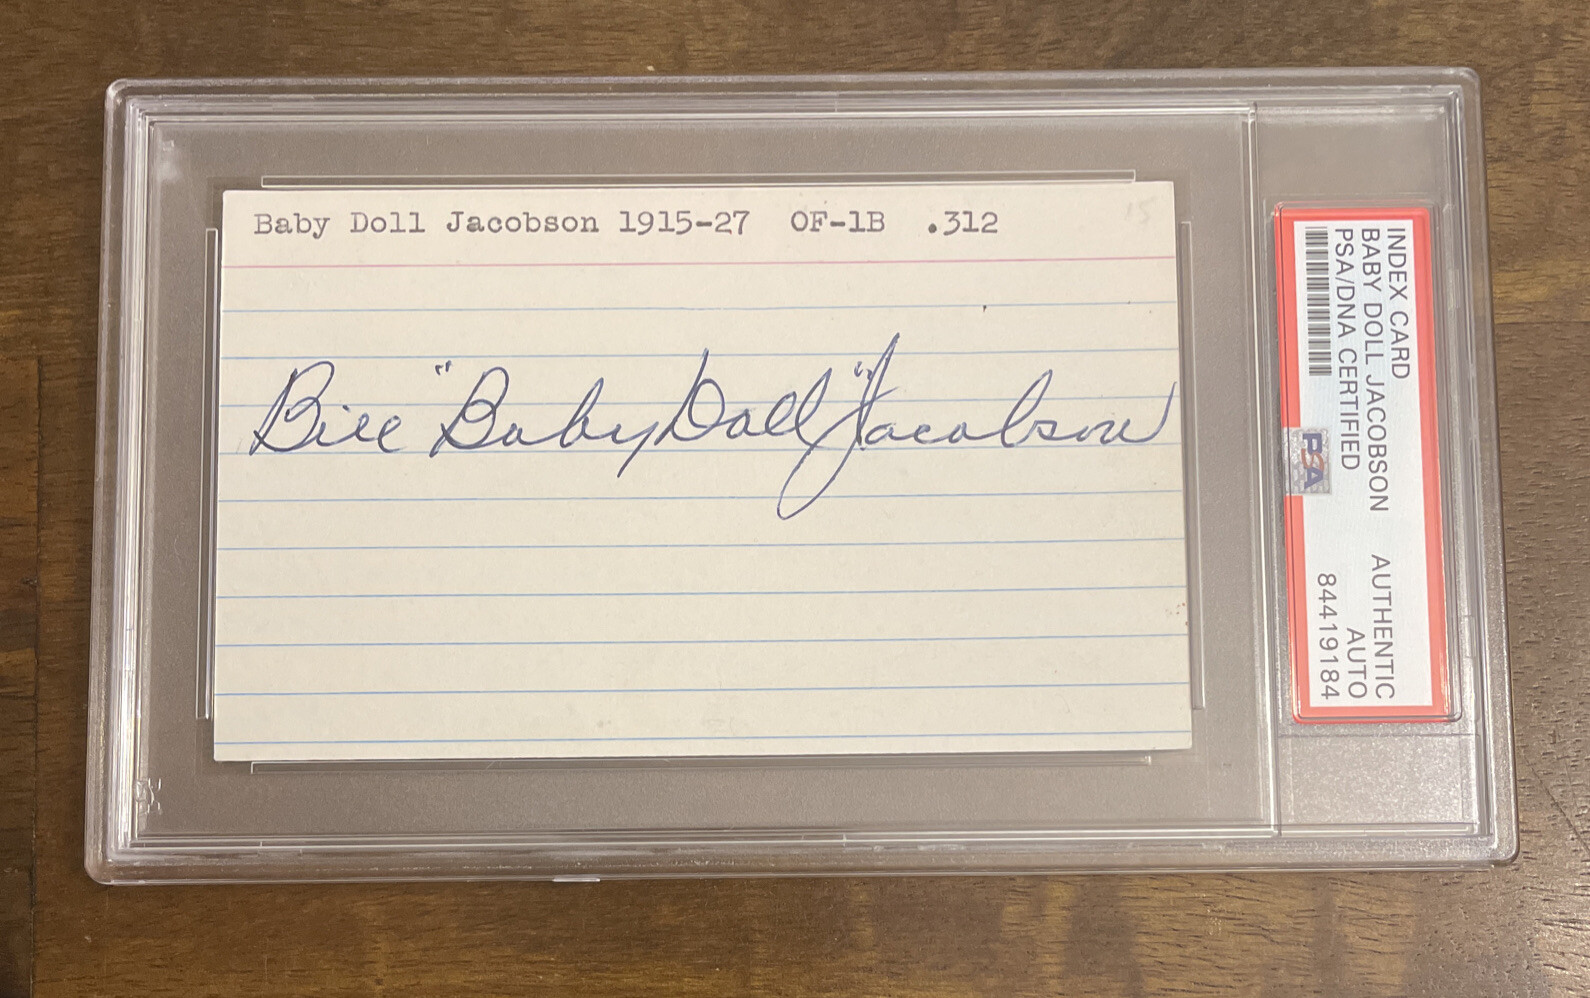 Baby Doll Jacobson 1915-27 OF-1B .312
15
Bill "Baby Doll" Jacobson
INDEX CARD
BABY DOLL JACOBSON AUTHENTIC
PSA/DNA CERTIFIED AUTO
84419184
PSA